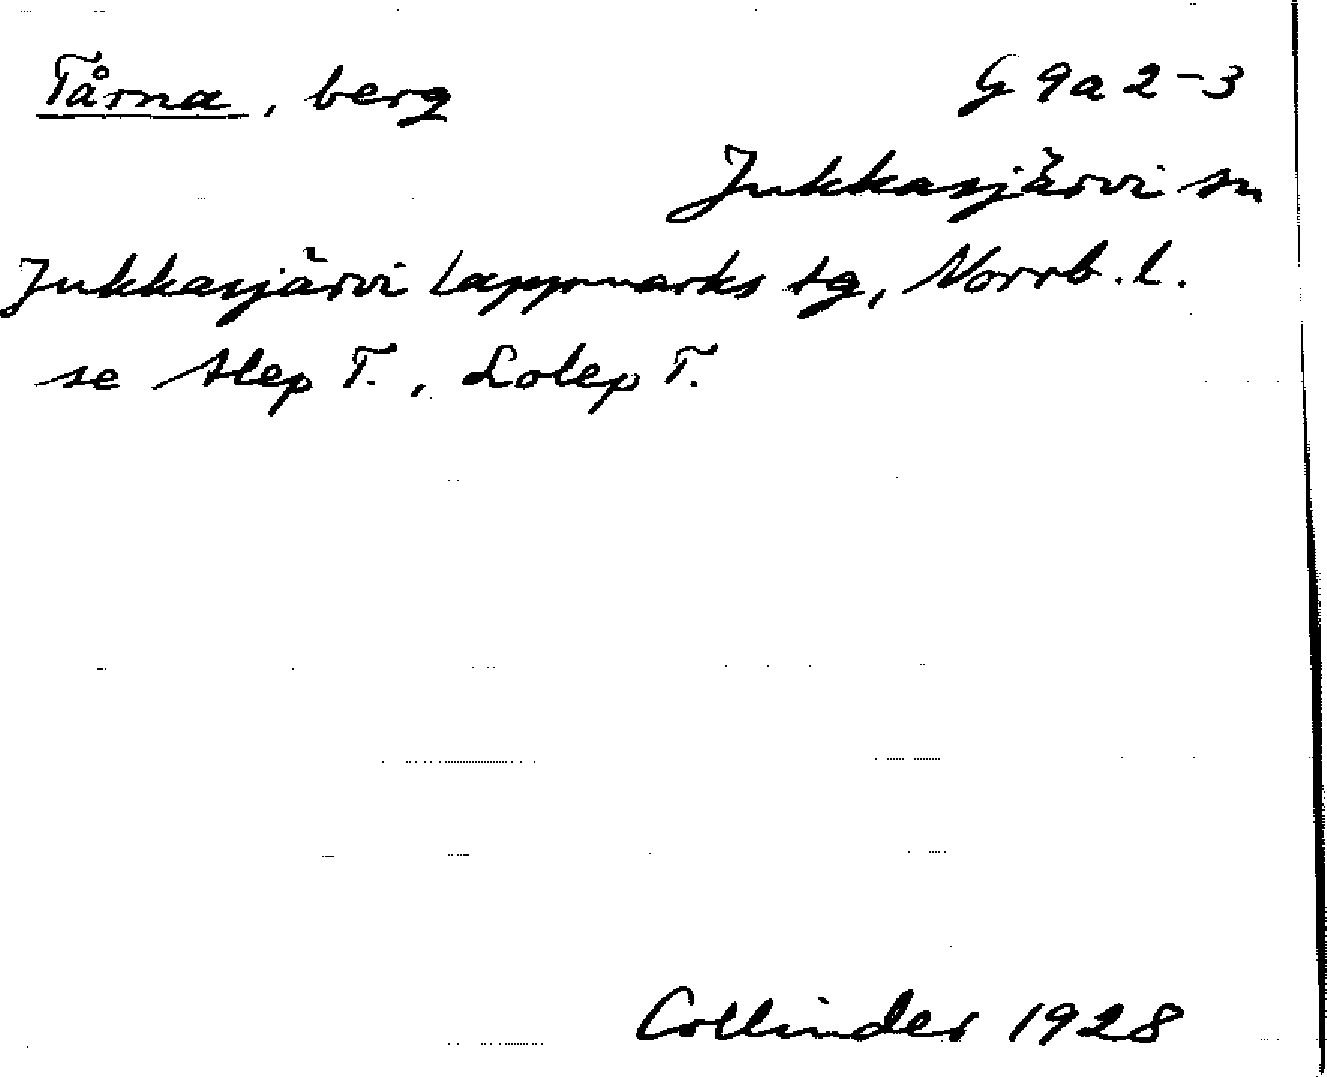 Tårna, berg G 9a 2-3
Jukkasjärvi sn
Jukkasjärvi lappmarks tg, Norrb. l.
se Alep T., Lolep T.
Collinder 1928